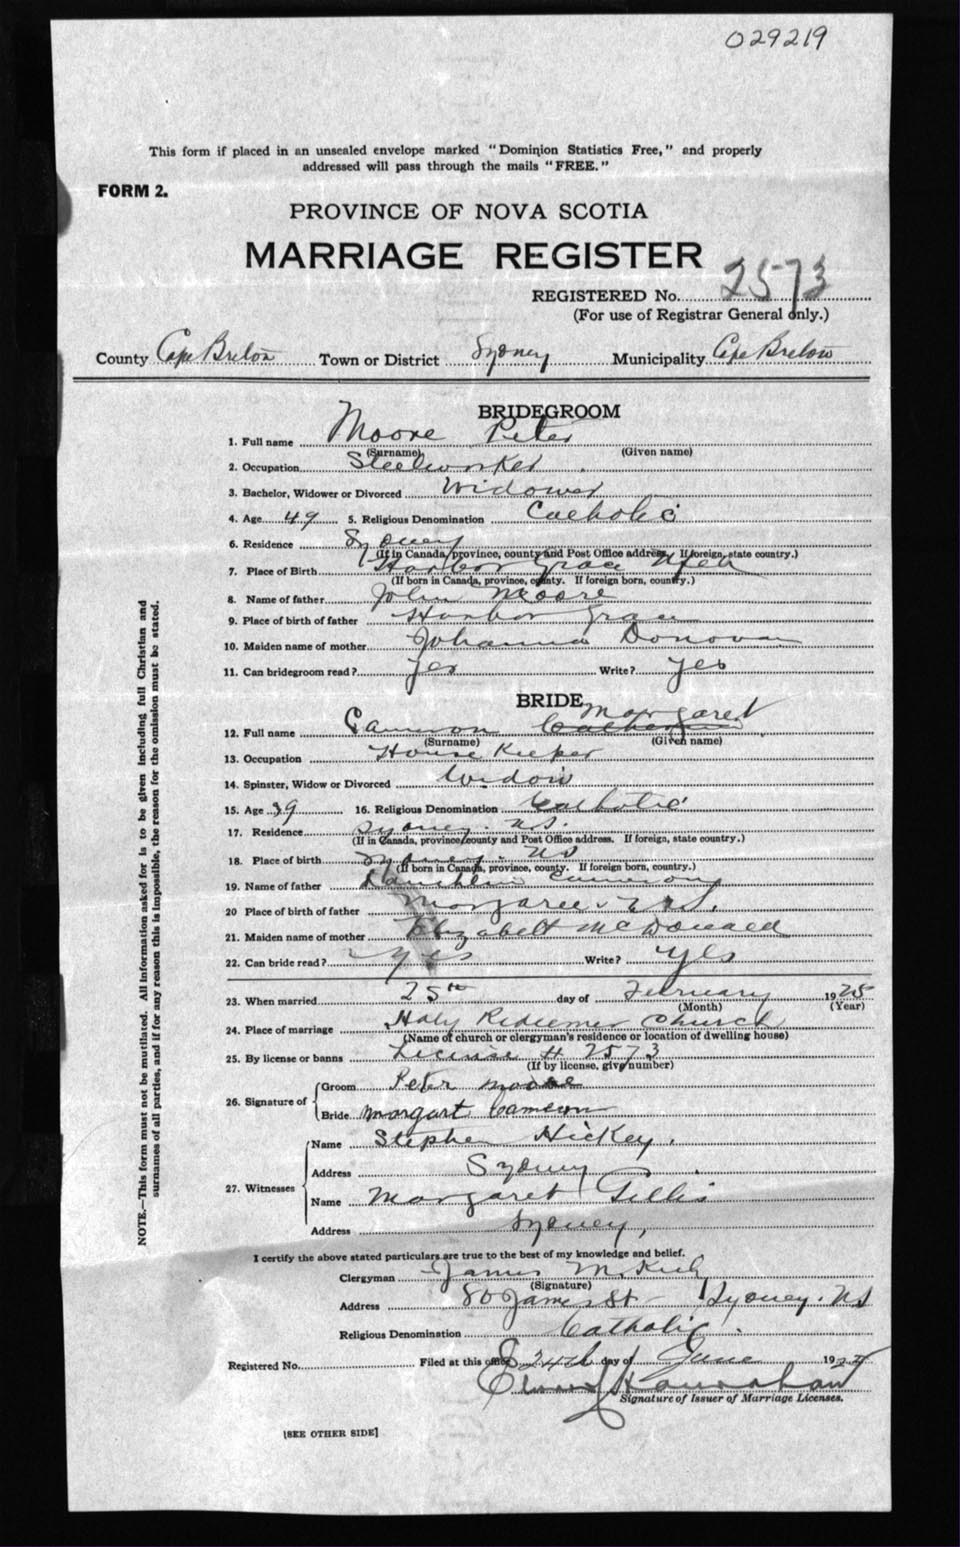 029219
This form if placed in an unsealed envelope marked "Dominion Statistics Free," and properly
addressed will pass through the mails "FREE."
FORM 2.
PROVINCE OF NOVA SCOTIA
MARRIAGE REGISTER
REGISTERED No. 2573
(For use of Registrar General only.)
County Cape Breton Town or District Sydney Municipality Cape Breton
BRIDEGROOM
1. Full name Moore Peter
(Surname) (Given name)
2. Occupation Steelworker
3. Bachelor, Widower or Divorced Widower
4. Age 49 5. Religious Denomination Catholic
6. Residence Sydney
(If in Canada, province, county and Post Office address. If foreign, state country.)
7. Place of Birth Harbor Grace Nfld
(If born in Canada, province, county. If foreign born, country.)
8. Name of father John Moore
9. Place of birth of father Harbor Grace
10. Maiden name of mother Johanna Donovan
11. Can bridegroom read? Yes Write? Yes
BRIDE
12. Full name Cameron Catherine Margaret
(Surname) (Given name)
13. Occupation House Keeper
14. Spinster, Widow or Divorced Widow
15. Age 39 16. Religious Denomination Catholic
17. Residence Sydney. N.S.
(If in Canada, province, county and Post Office address. If foreign, state country.)
18. Place of birth Sydney. NS
(If born in Canada, province, county. If foreign born, country.)
19. Name of father
20 Place of birth of father Margaree. N.S.
21. Maiden name of mother Elizabeth McDonald
22. Can bride read? Yes Write? Yes
23. When married 25th day of February 1925
(Month) (Year)
24. Place of marriage Holy Redeemer Church
(Name of church or clergyman's residence or location of dwelling house)
25. By license or banns License # 2573
(If by license, give number)
26. Signature of
Groom Peter Moore
Bride Margart Cameron
27. Witnesses
Name Stephen Hickey.
Address Sydney
Name Margaret Gillis
Address Sydney,
I certify the above stated particulars are true to the best of my knowledge and belief.
Clergyman James
(Signature)
Address 80 James St - Sydney. NS
Religious Denomination Catholic.
Registered No. Filed at this office 24th day of June 1925
Signature of Issuer of Marriage Licenses.
[SEE OTHER SIDE]
NOTE.—This form must not be mutilated. All information asked for is to be given including full Christian and
surnames of all parties, and if for any reason this is impossible, the reason for the omission must be stated.